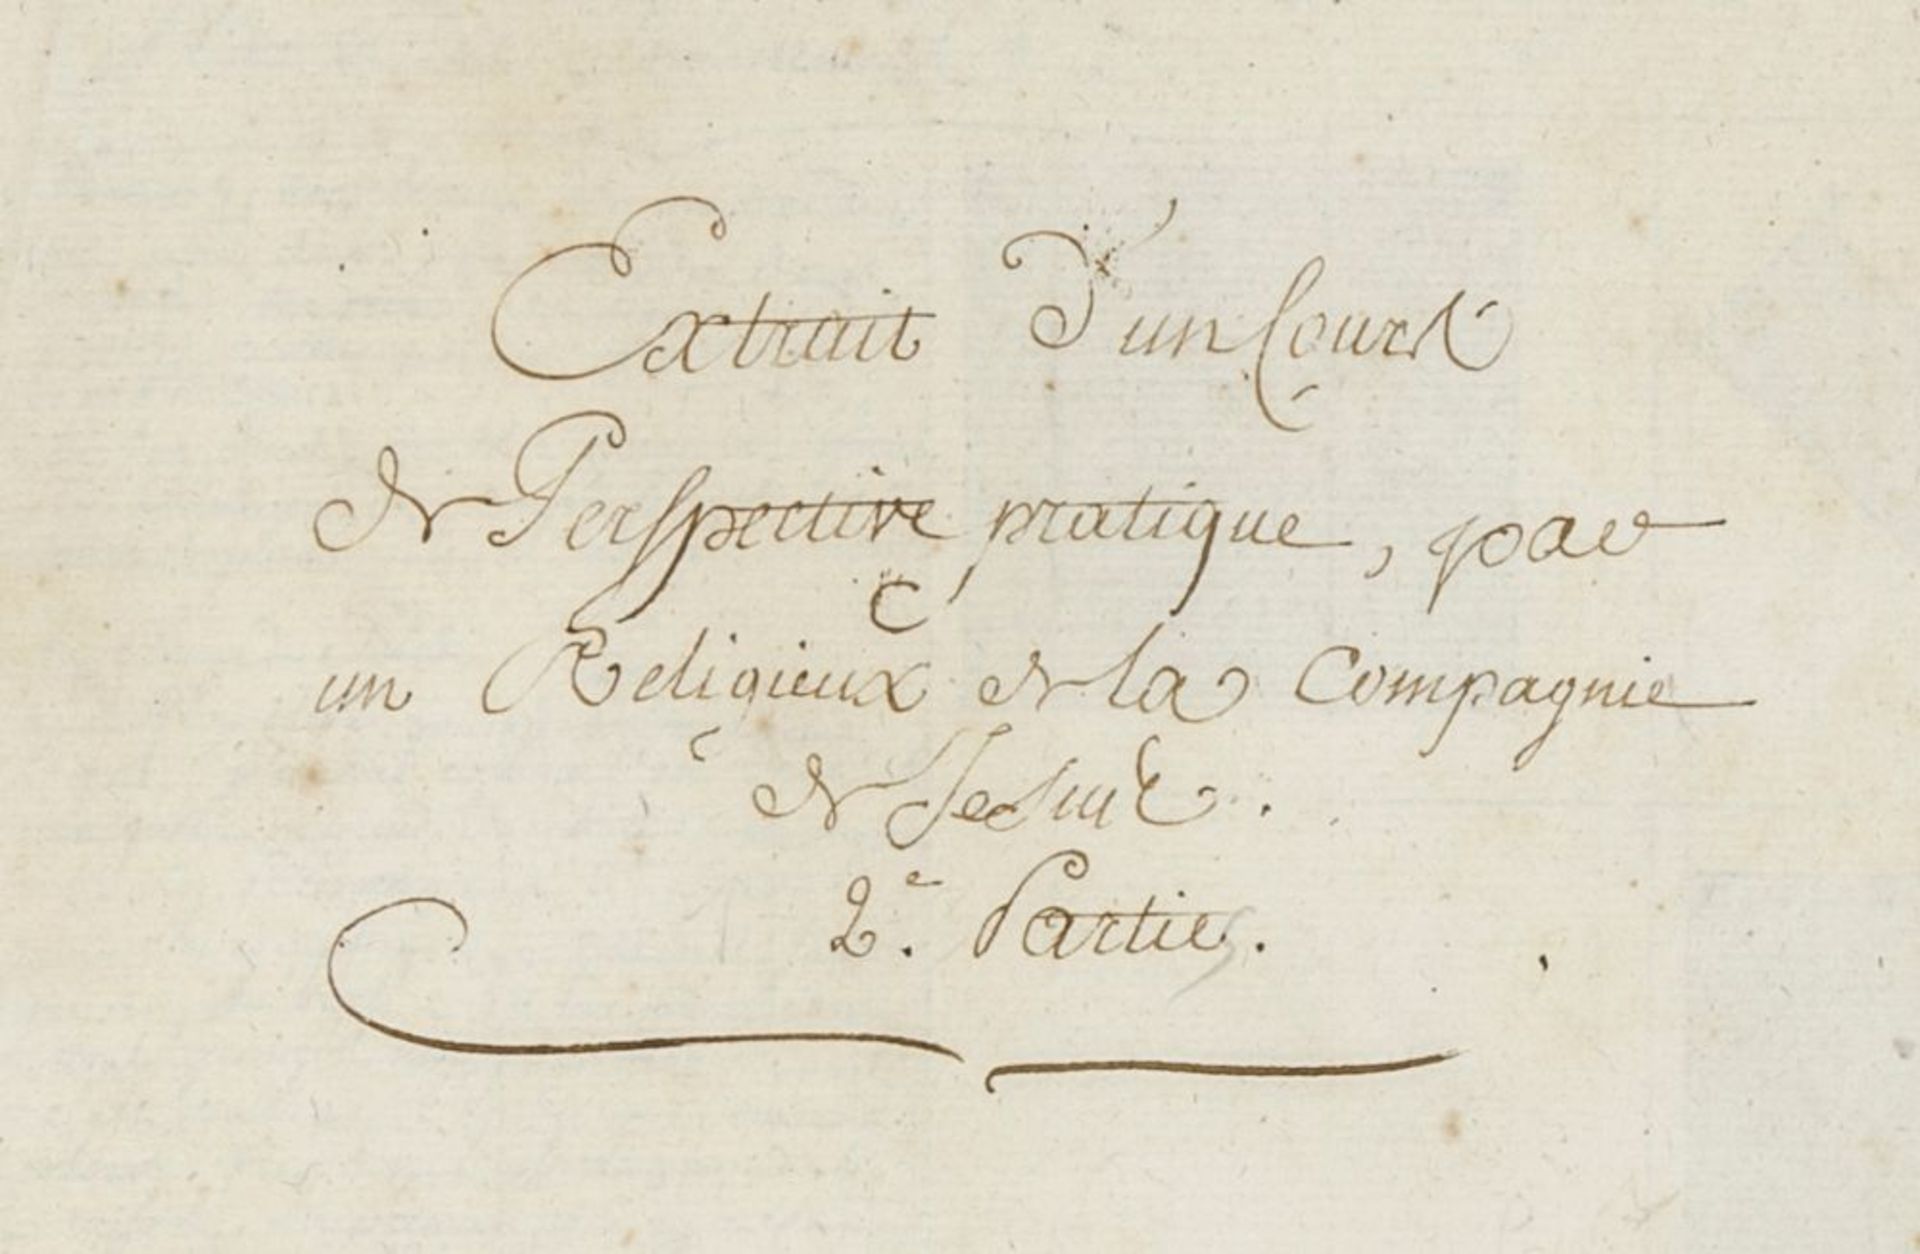 Extrait d'un Cours
de Perspective pratique, par
un Religieux de la Compagnie
de Jesus.
2.e Partie.